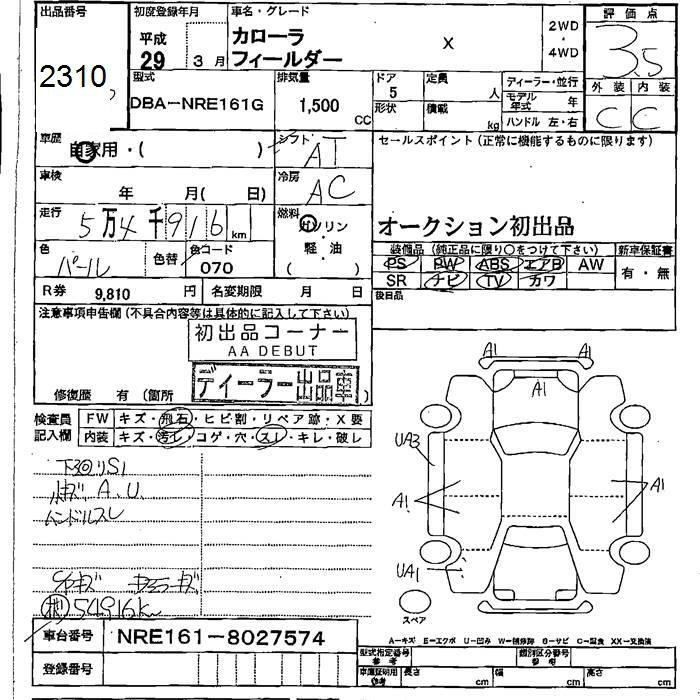 出品番号 初度登録年月 車名・グレード 評価点
平成 カローラ X 2WD
29 3月 フィールダー ・ 4WD 3.5
2310
型式 排気量 ドア 定員 ディーラー・並行 外装 内装
DBA-NRE161G 1,500 CC 5 人 モデル年式 年 C C
形状 積載 kg ハンドル 左・右
車歴 シフト セールスポイント(正常に機能するものに限ります)
自家用・( ) AT
車検 冷房
年 月( 日) AC
走行 燃料 オークション初出品
5万4千916km ガソリン
軽・油
( )
色 色替 色コード 装備品(純正品に限り○をつけて下さい) 新車保証書
パール 070 PS PW ABS エアB AW 有・無
SR ナビ TV カワ
R券 9,810円 名変期限 月 日 後日品
注意事項申告欄(不具合内容等は具体的に記入して下さい)
初出品コーナー
AA DEBUT
ディーラー出品車
修復歴 有(箇所 )
検査員記入欄 FW キズ・飛石・ヒビ割・リペア跡・X要
内装 キズ・汚レ・コゲ・穴・スレ・キレ・破レ
A1 A1
A1
UA3
A1 A1
UA1
S1
A.U.
ハンドルスレ
キズ キズ
54916km
スペア
A-キズ E-エクボ U-凹み W-補修跡 S-サビ C-腐食 XX-交換済
車台番号 NRE161-8027574
型式指定番号 参考 類別区分番号 参考
登録番号
車庫証明用 参考 長さ cm 幅 cm 高さ cm